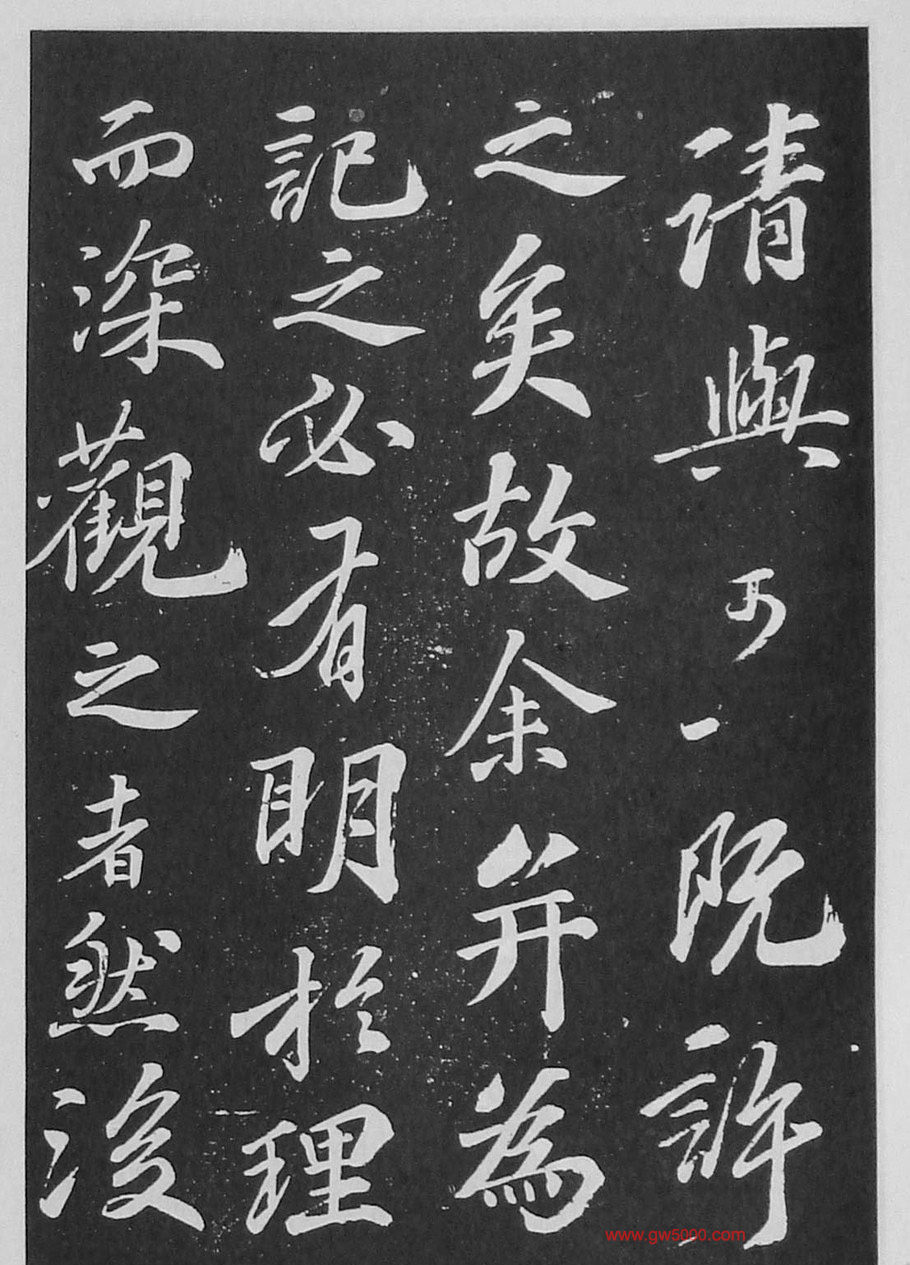 請與可々々既許
之矣故余并為
記之必有明於理
而深觀之者然後
www.gw5000.com